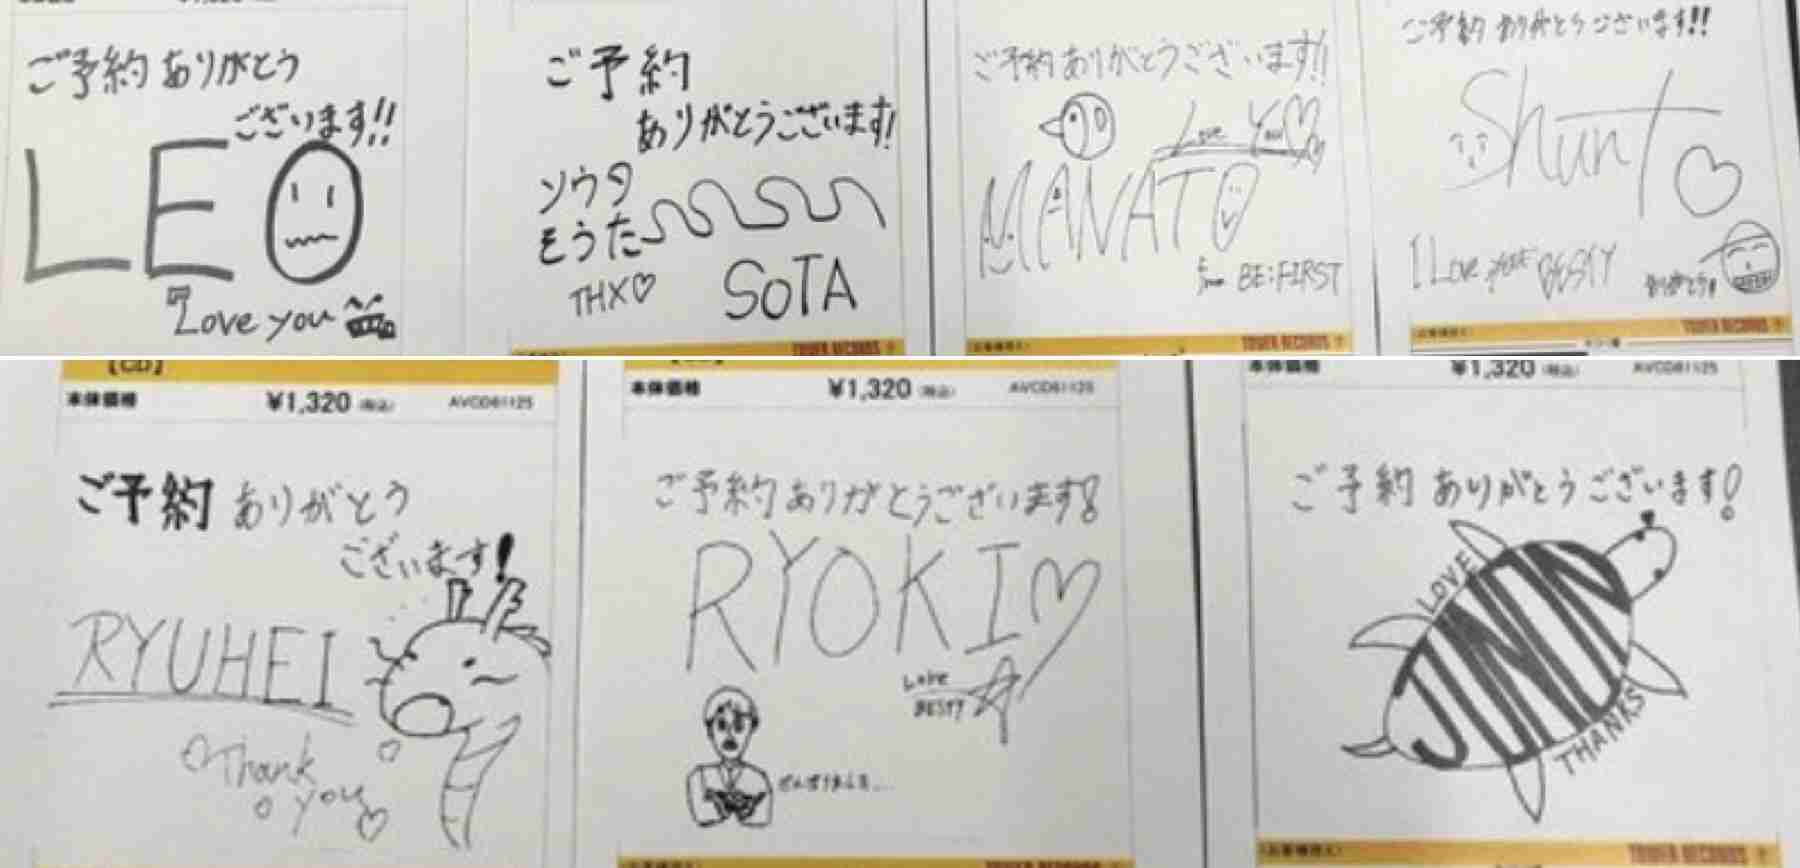 ご予約ありがとう
ございます!!
LEO
Love you
ご予約
ありがとうございます!
ソウタ
そうた
THX♡
SOTA
TOWER RECORDS
ご予約ありがとうございます!!
Love You♡
MANATO
from BE:FIRST
TOWER RECORDS
ご予約ありがとうございます!!
Shunto
I Love BESTY
ありがとう!
TOWER RECORDS
【CD】
本体価格 ¥1,320(税込) AVCD61125
ご予約ありがとう
ございます!
RYUHEI
Thank
you
本体価格 ¥1,320(税込) AVCD61125
ご予約ありがとうございます!
RYOKI♡
Love
BESTY
がんばりました...
TOWER RECORDS
本体価格 ¥1,320(税込) AVCD61125
ご予約ありがとうございます!
LOVE
JUNON
THANKS
TOWER RECORDS